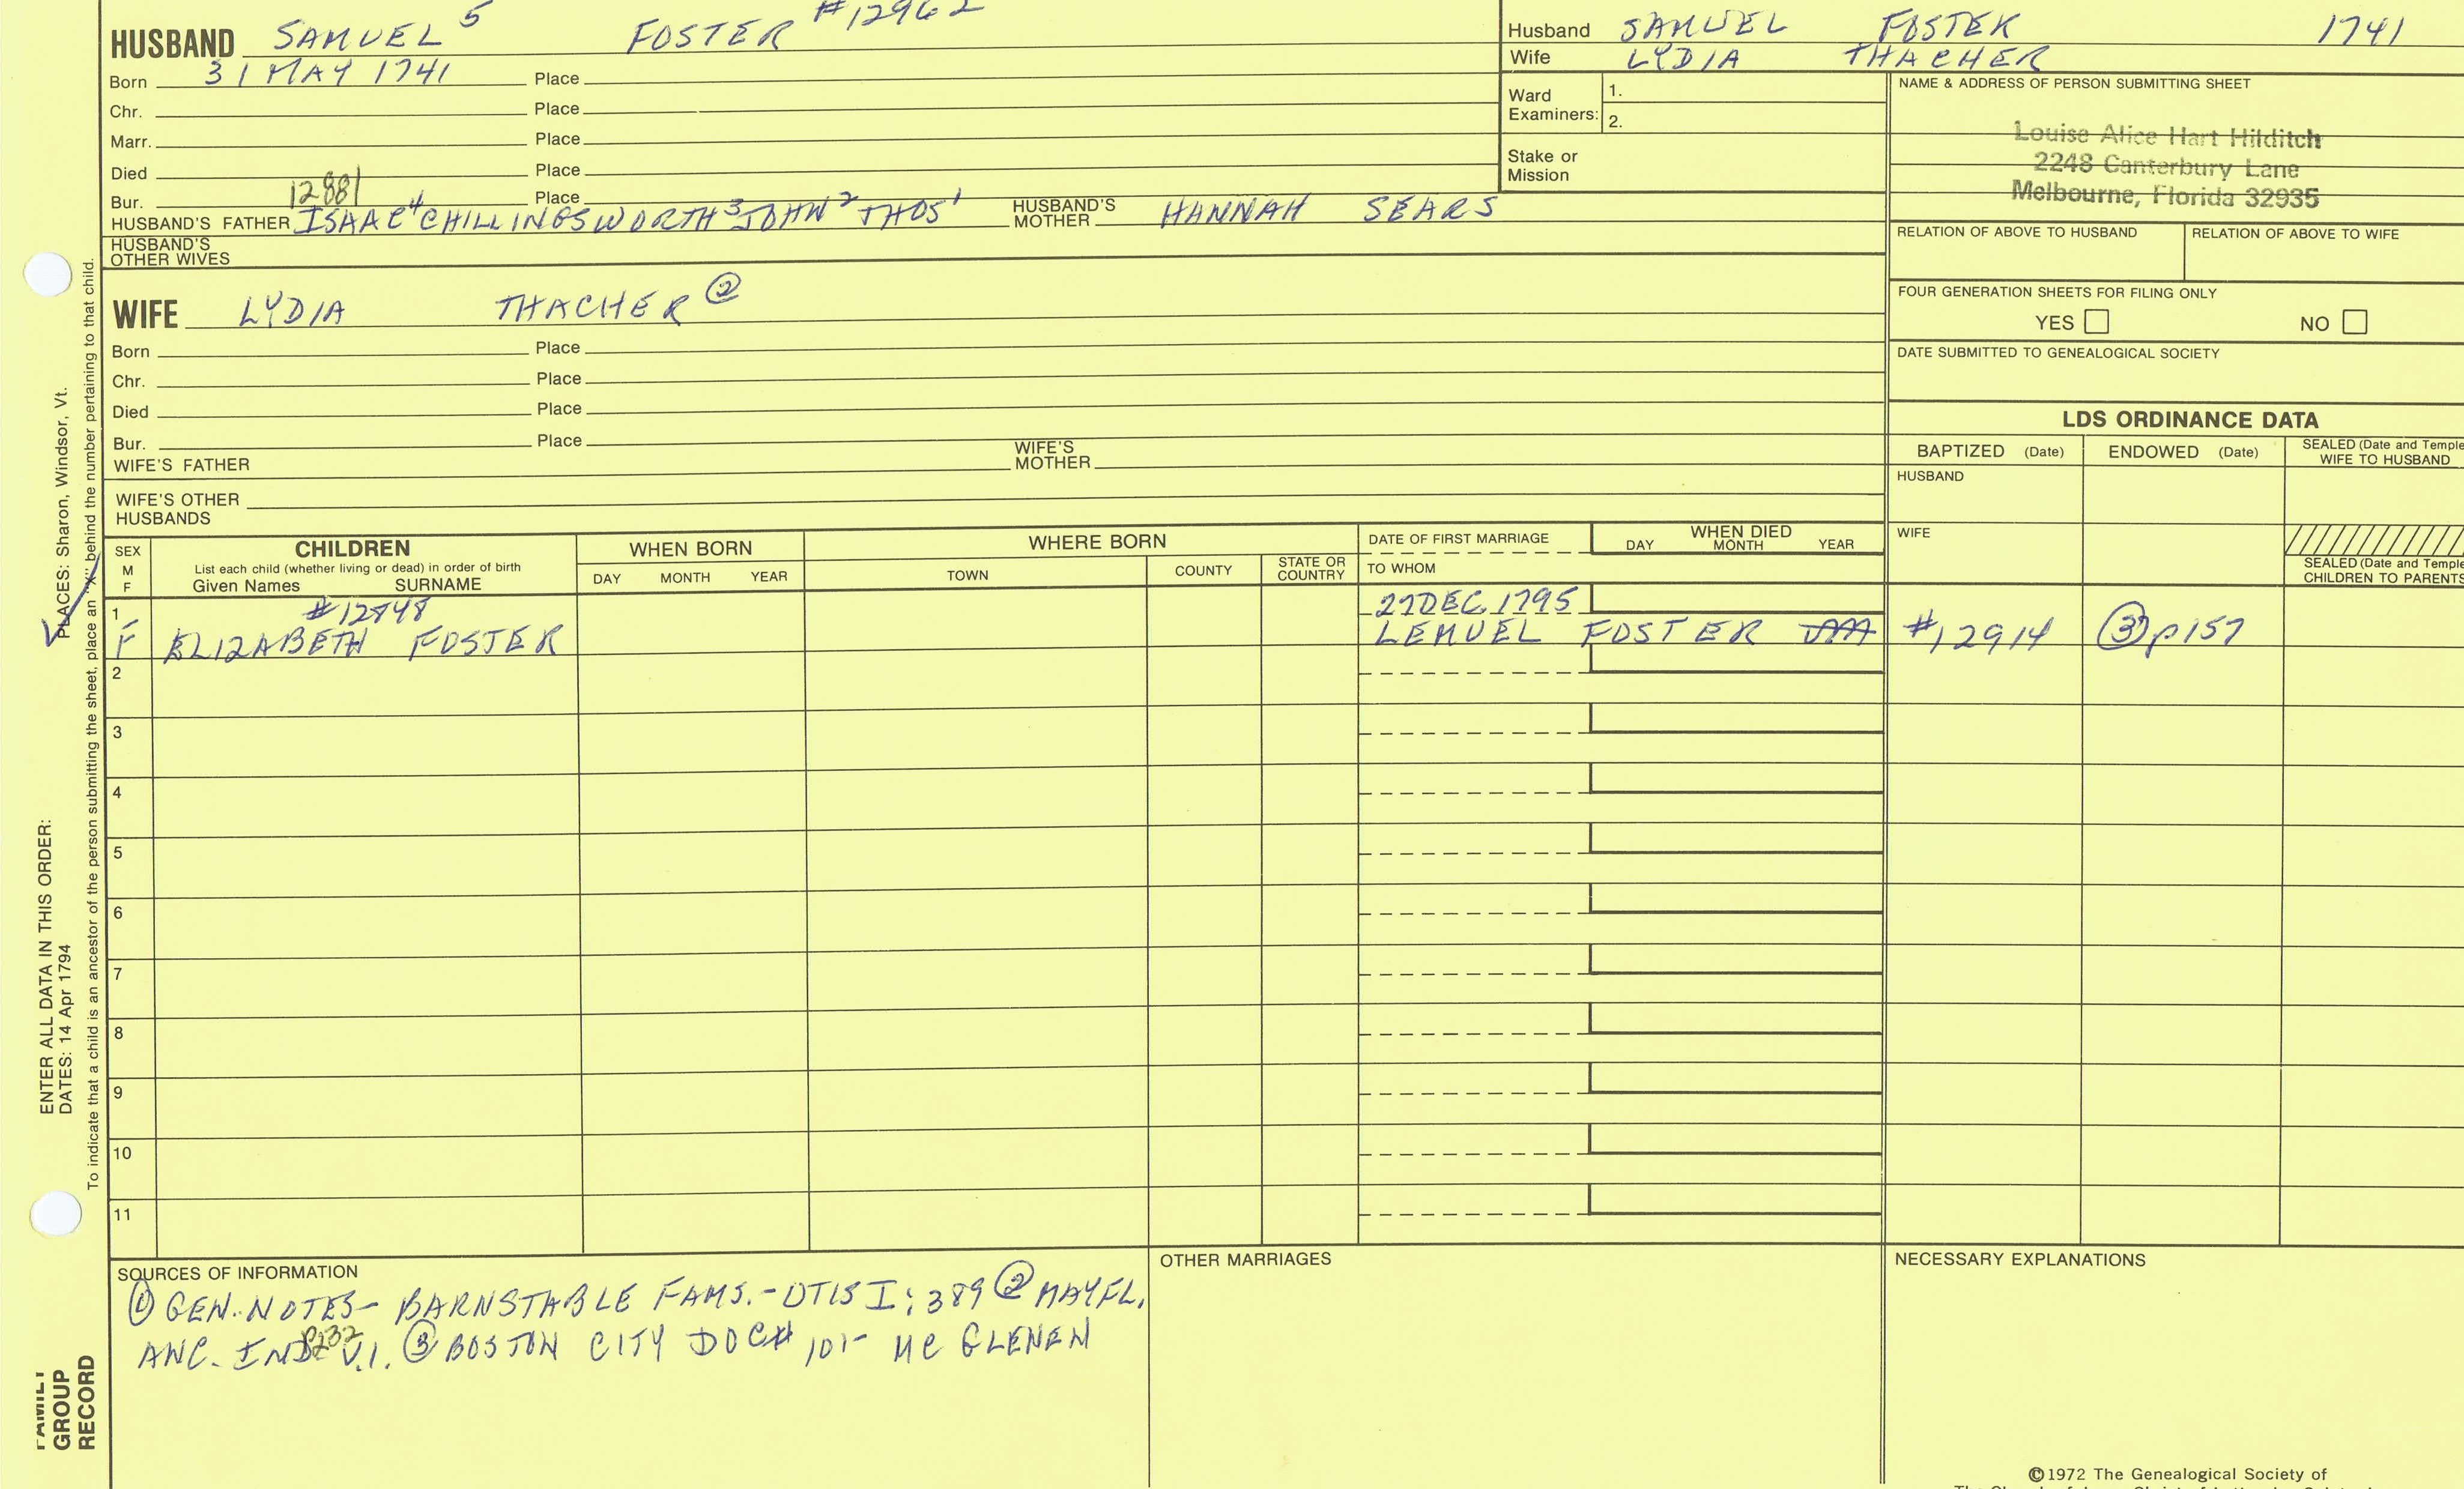 HUSBAND SAMUEL 5 FOSTER #12962
Born 31 MAY 1741 Place
Chr. Place
Marr. Place
Died Place
Bur. 12881 Place
HUSBAND'S FATHER ISAAC 4 CHILLINGSWORTH 3 JOHN 2 THOS 1 HUSBAND'S MOTHER HANNAH SEARS
HUSBAND'S OTHER WIVES
WIFE LYDIA THACHER ②
Born Place
Chr. Place
Died Place
Bur. Place
WIFE'S FATHER WIFE'S MOTHER
WIFE'S OTHER HUSBANDS
Husband SAMUEL FOSTER 1741
Wife LYDIA THACHER
Ward Examiners: 1.
2.
Stake or Mission
NAME & ADDRESS OF PERSON SUBMITTING SHEET
Louise Alice Hart Hilditch
2248 Canterbury Lane
Melbourne, Florida 32935
RELATION OF ABOVE TO HUSBAND RELATION OF ABOVE TO WIFE
FOUR GENERATION SHEETS FOR FILING ONLY
YES NO
DATE SUBMITTED TO GENEALOGICAL SOCIETY
LDS ORDINANCE DATA
BAPTIZED (Date) ENDOWED (Date) SEALED (Date and Temple WIFE TO HUSBAND
HUSBAND
WIFE
SEALED (Date and Temple CHILDREN TO PARENTS
SEX M F
CHILDREN
List each child (whether living or dead) in order of birth
Given Names SURNAME
WHEN BORN
DAY MONTH YEAR
WHERE BORN
TOWN COUNTY STATE OR COUNTRY
DATE OF FIRST MARRIAGE
TO WHOM
WHEN DIED
DAY MONTH YEAR
1 #12848 27 DEC. 1795
F ELIZABETH FOSTER LEMUEL FOSTER #12914 ③ p157
2
3
4
5
6
7
8
9
10
11
SOURCES OF INFORMATION
① GEN. NOTES - BARNSTABLE FAMS. - OTIS I: 389 ② MAYFL.
ANC. IND V.1. P232 ③ BOSTON CITY DOC# 101- MC GLENEN
OTHER MARRIAGES
NECESSARY EXPLANATIONS
©1972 The Genealogical Society of
ENTER ALL DATA IN THIS ORDER:
DATES: 14 Apr 1794 PLACES: Sharon, Windsor, Vt.
To indicate that a child is an ancestor of the person submitting the sheet, place an "X" behind the number pertaining to that child.
FAMILY
GROUP
RECORD